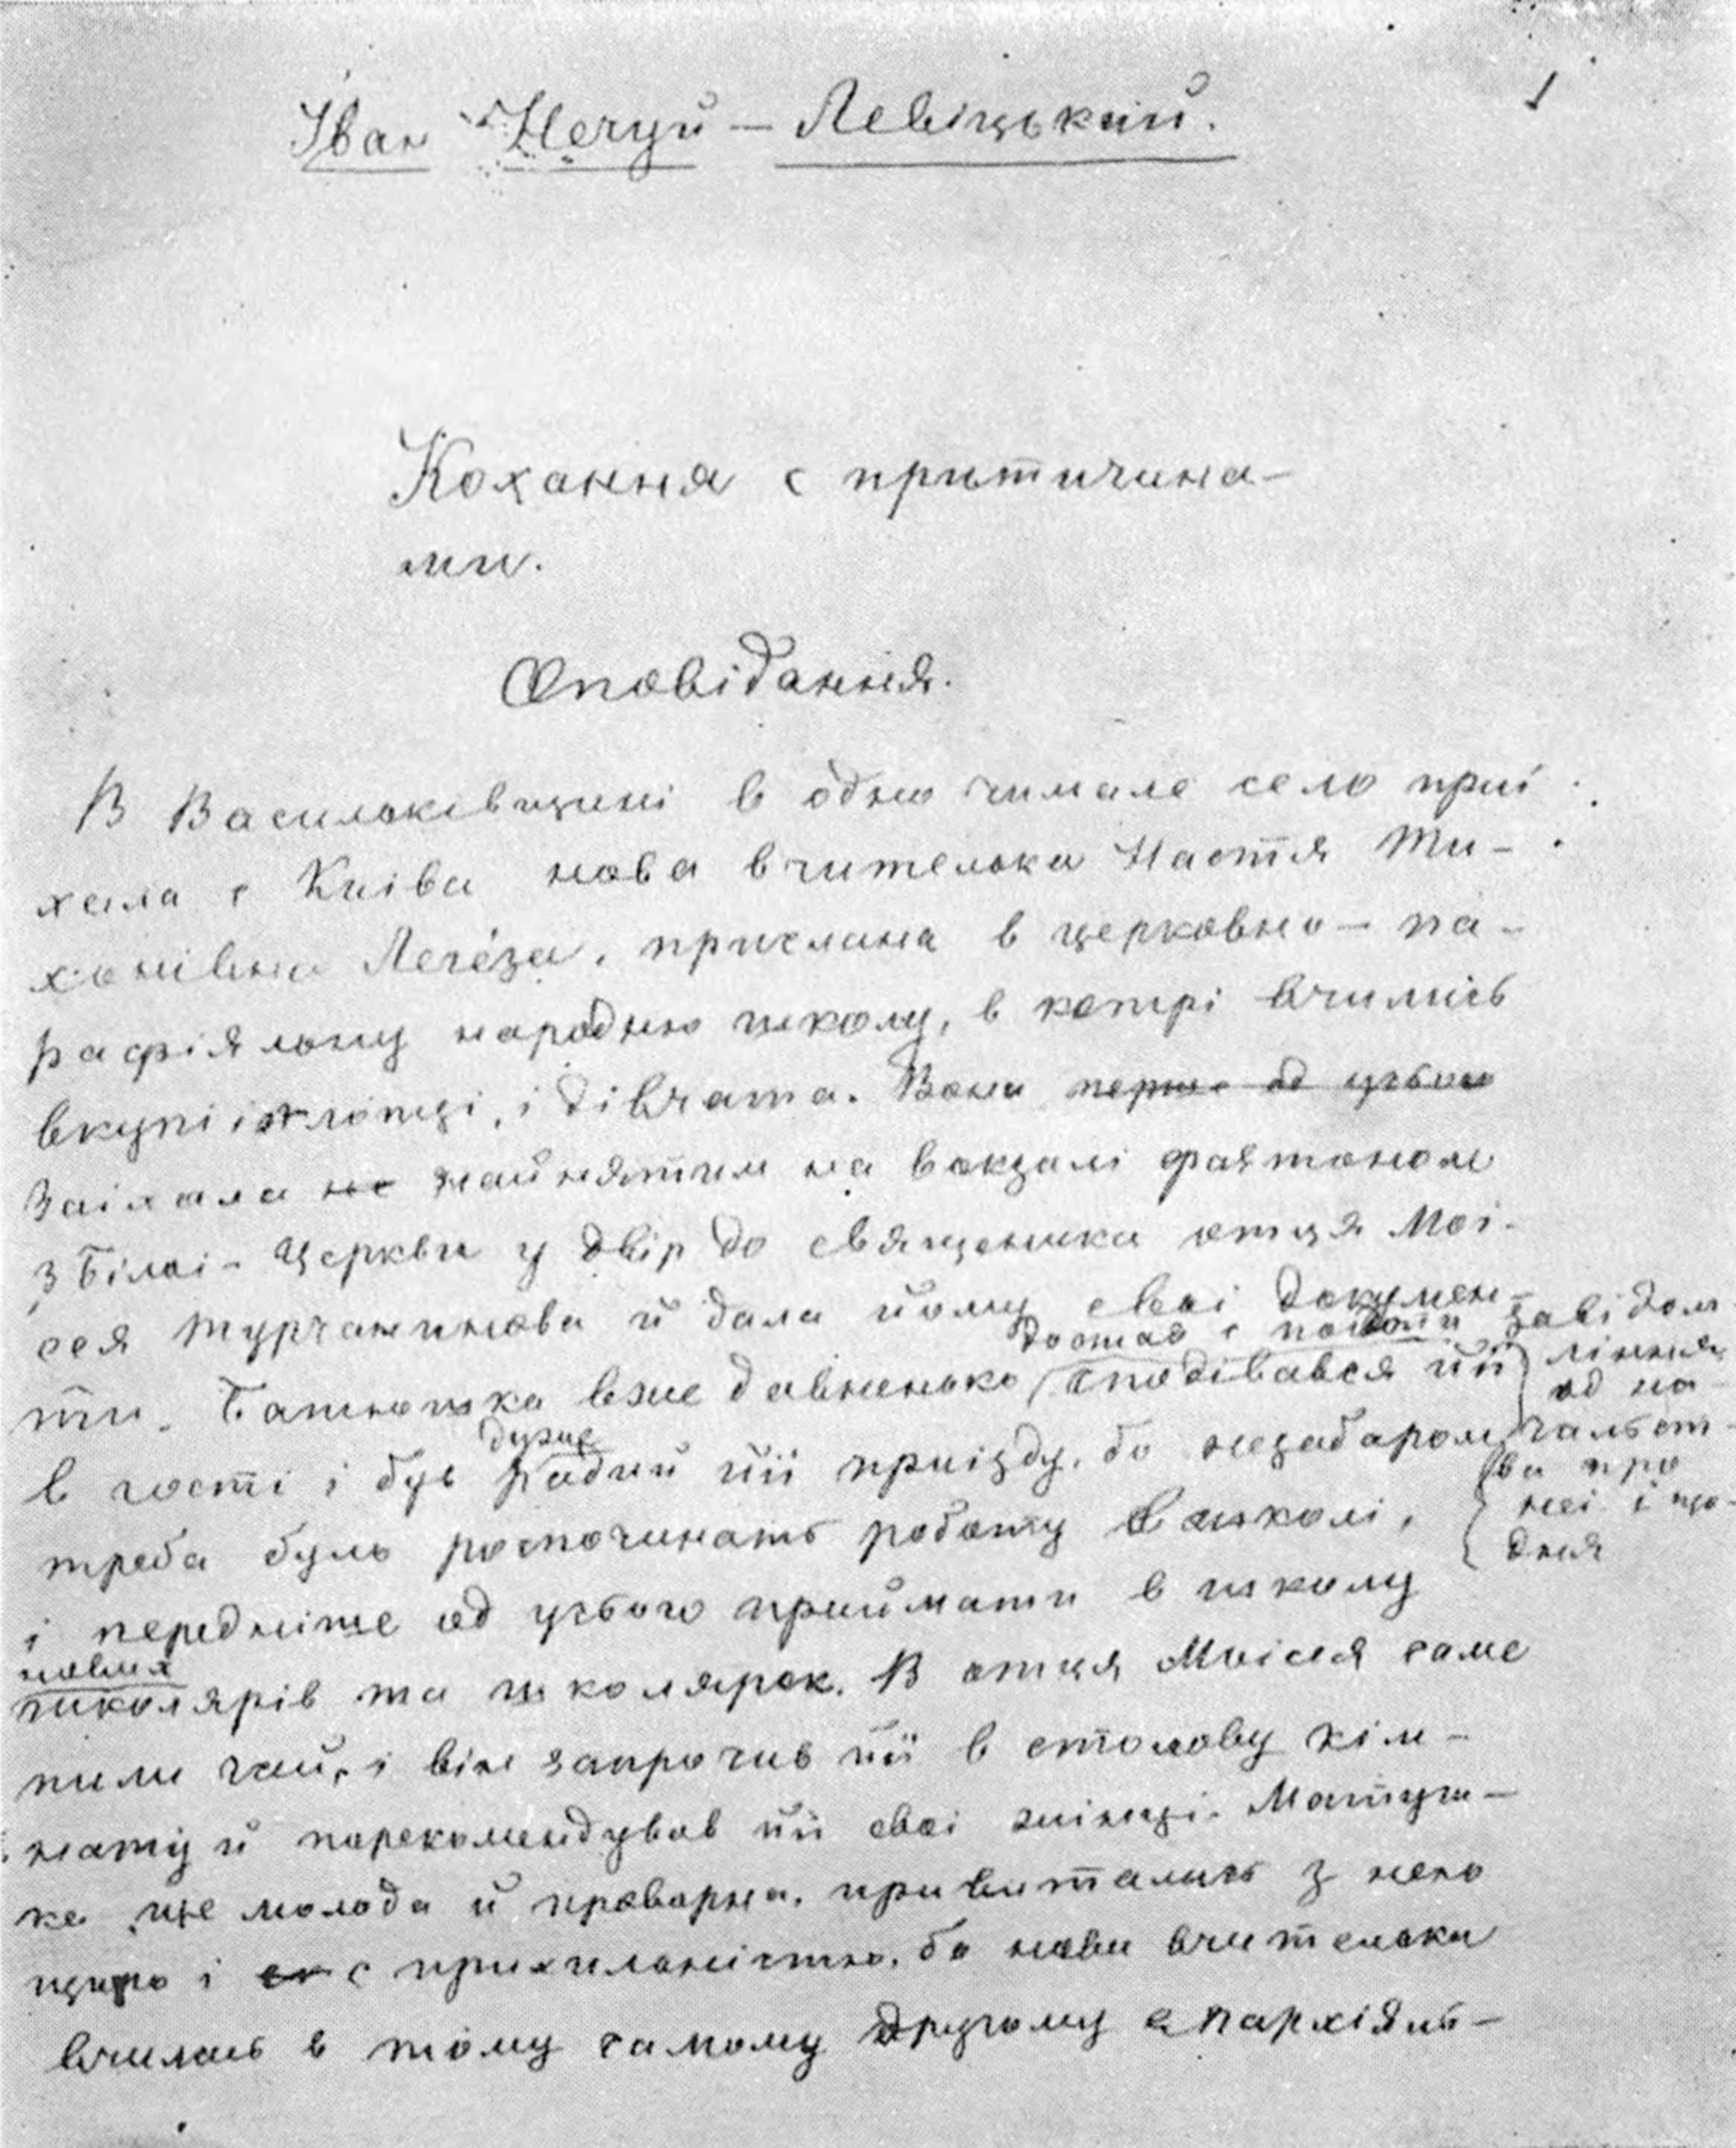 1
Іван Нечуй — Левіцький.
Кохання с притичина-
ми.
Оповідання.
В Васильківщині в одно чимале село приї
хала с Київа нова вчителька Настя Ти-
хонівна Леге́за, прислана в церковно — па-
рафіяльну народню школу, в котрі вчились
вкупі і хлопці, і дівчата. Вона перше од усього
заїхала не найнятим на вокзалі фаятоном
з Білої-Церкви у двір до священика отця Мої-
сея Турчанинова й дала йому свої докумен-
достав с пошти завідом
ти. Батюшка вже давненько сподівався її
лення
од на-
дуже
в гості і був радий її приїзду, бо незабаром
чальст-
ва про
треба було розпочинать роботу в школі,
неї і що-
дня
і передніше од усього приймати в школу
нових
школярів та школярок. В отця Моісея саме
пили чай, і він запросив її в столову кім-
нату й порекомендував її свої жінці. Матуш-
ка, ще молода й проворна, привиталась з нею
щиро і с прихильністю, бо нова вчителька
вчилась в тому самому другому епархіяль-